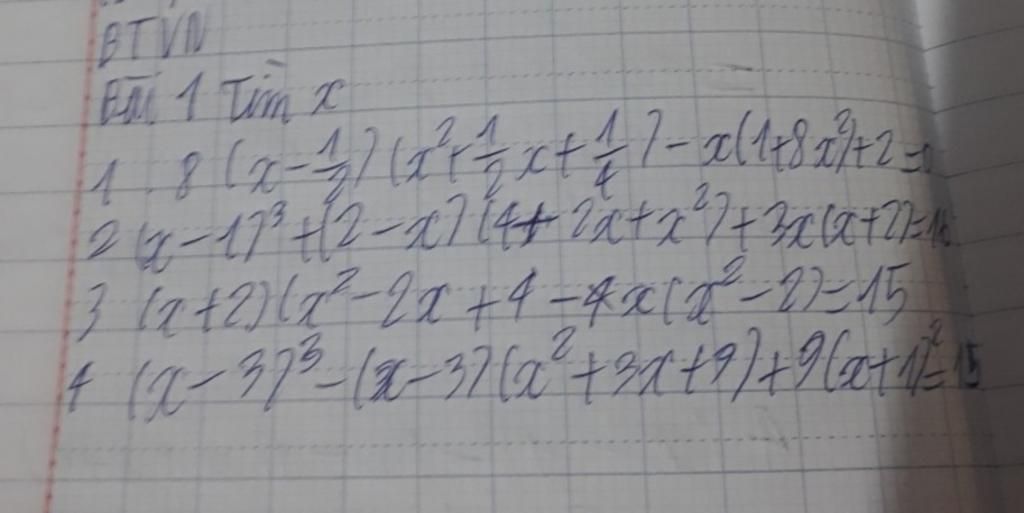 BTVN
Bài 1 Tìm x
1. 8 (x - 1/2) (x² + 1/2 x + 1/4) - x(1+8x²)+2=0
2 (x-1)³ + (2-x) (4+2x+x²) + 3x(x+2)=16
3 (x+2) (x² - 2x + 4 - 4x(x² - 2) = 15
4 (x-3)³ - (x-3) (x² + 3x + 9) + 9(x+1)² = 15